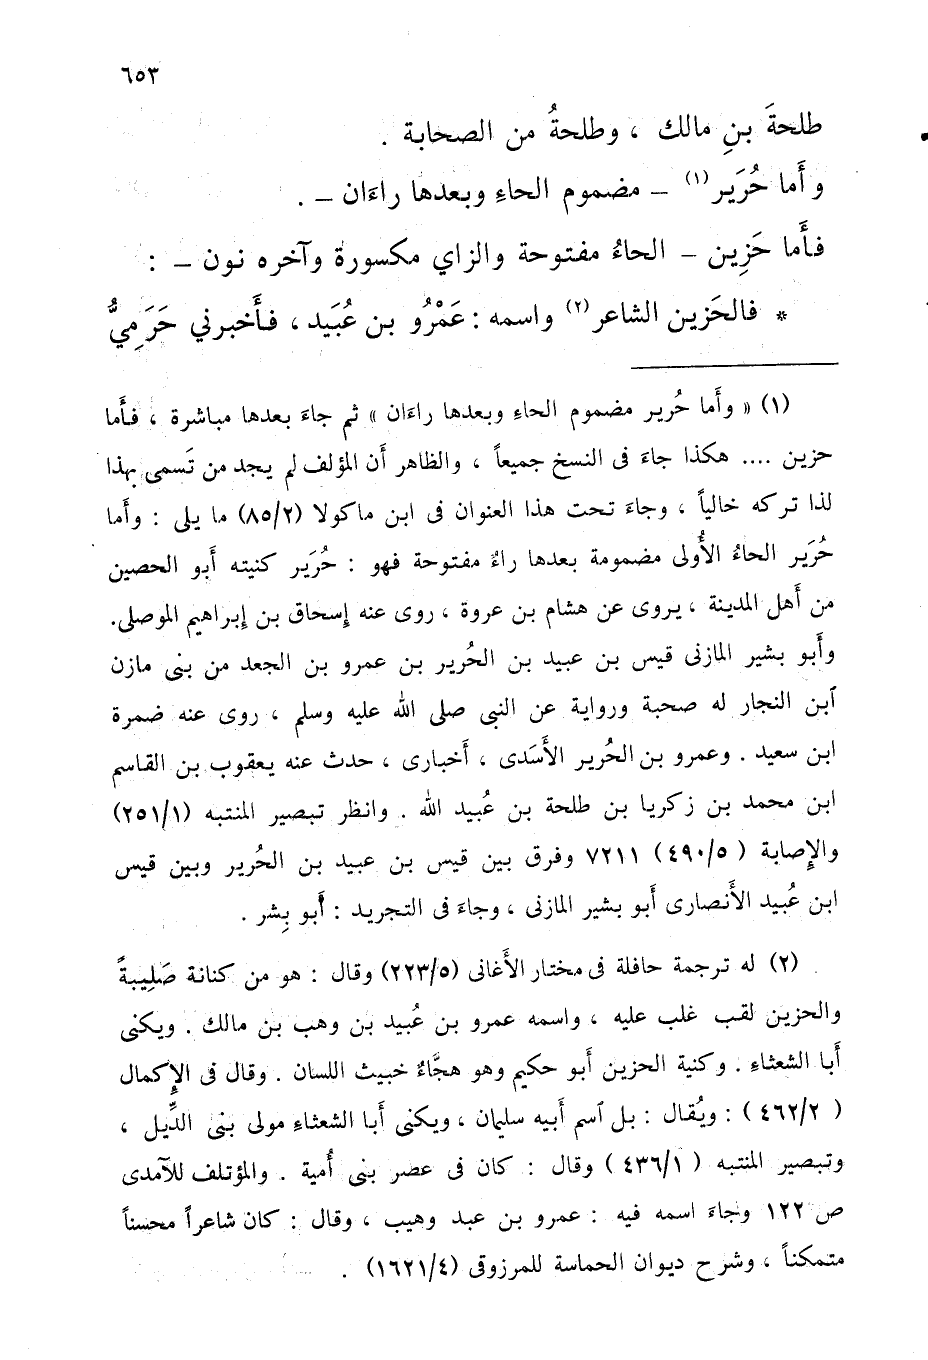 ٦٥٣
طلحةَ بنِ مالك ، وطلحةُ من الصحابة .
وأَما حُرَير(١) ــ مضموم الحاءِ وبعدها راءَان ــ .
فأَما حَزِين ــ الحاءُ مفتوحة والزاي مكسورة وآخره نون ــ :
* فالحَزين الشاعر(٢) واسمه : عَمْرُو بن عُبَيد ، فأَخبرني حَرَمِيُّ
(١) « وأَما حُرير مضموم الحاءِ وبعدها راءَان » ثم جاءَ بعدها مباشرة ، فأَما
حزين .... هكذا جاءَ فى النسخ جميعاً ، والظاهر أَن المؤلف لم يجد من تَسمى بهذا
لذا تركه خالياً ، وجاءَ تحت هذا العنوان فى ابن ماكولا (٨٥/٢) ما يلى : وأَما
حُرَير الحاءُ الأُولى مضمومة بعدها راءٌ مفتوحة فهو : حُرَير كنيته أَبو الحصين
من أَهل المدينة ، يروى عن هشام بن عروة ، روى عنه إِسحاق بن إِبراهيم الموصلى.
وأَبو بشير المازنى قيس بن عبيد بن الحُرير بن عمرو بن الجعد من بنى مازن
ٱبن النجار له صحبة ورواية عن النبى صلى الله عليه وسلم ، روى عنه ضمرة
ابن سعيد . وعمرو بن الحُرير الأَسَدى ، أَخبارى ، حدث عنه يعقوب بن القاسم
ابن محمد بن زكريا بن طلحة بن عُبيد الله . وانظر تبصير المنتبه (٢٥١/١)
والإِصابة (٤٩٠/٥) ٧٢١١ وفرق بين قيس بن عبيد بن الحُرير وبين قيس
ابن عُبيد الأَنصارى أَبو بشير المازنى ، وجاءَ فى التجريد : أَبو بِشر .
(٢) له ترجمة حافلة فى مختار الأَغانى (٢٢٣/٥) وقال : هو من كنانة صَلِيبةً
والحزين لقب غلب عليه ، واسمه عمرو بن عُبيد بن وهب بن مالك . ويكنى
أَبا الشعثاءِ . وكنية الحزين أَبو حكيم وهو هجَّاءٌ خبيث اللسان . وقال فى الإِكمال
(٤٦٢/٢) : ويُقال : بل ٱسم أَبيه سليمان ، ويكنى أَبا الشعثاءِ مولى بنى الدِّيل ،
وتبصير المنتبه (٤٣٦/١) وقال : كان فى عصر بنى أُمية . والمؤتلف للآمدى
ص ١٢٢ وجاءَ اسمه فيه : عمرو بن عبد وهيب ، وقال : كان شاعراً محسناً
متمكناً ، وشرح ديوان الحماسة للمرزوقى (١٦٢١/٤) .